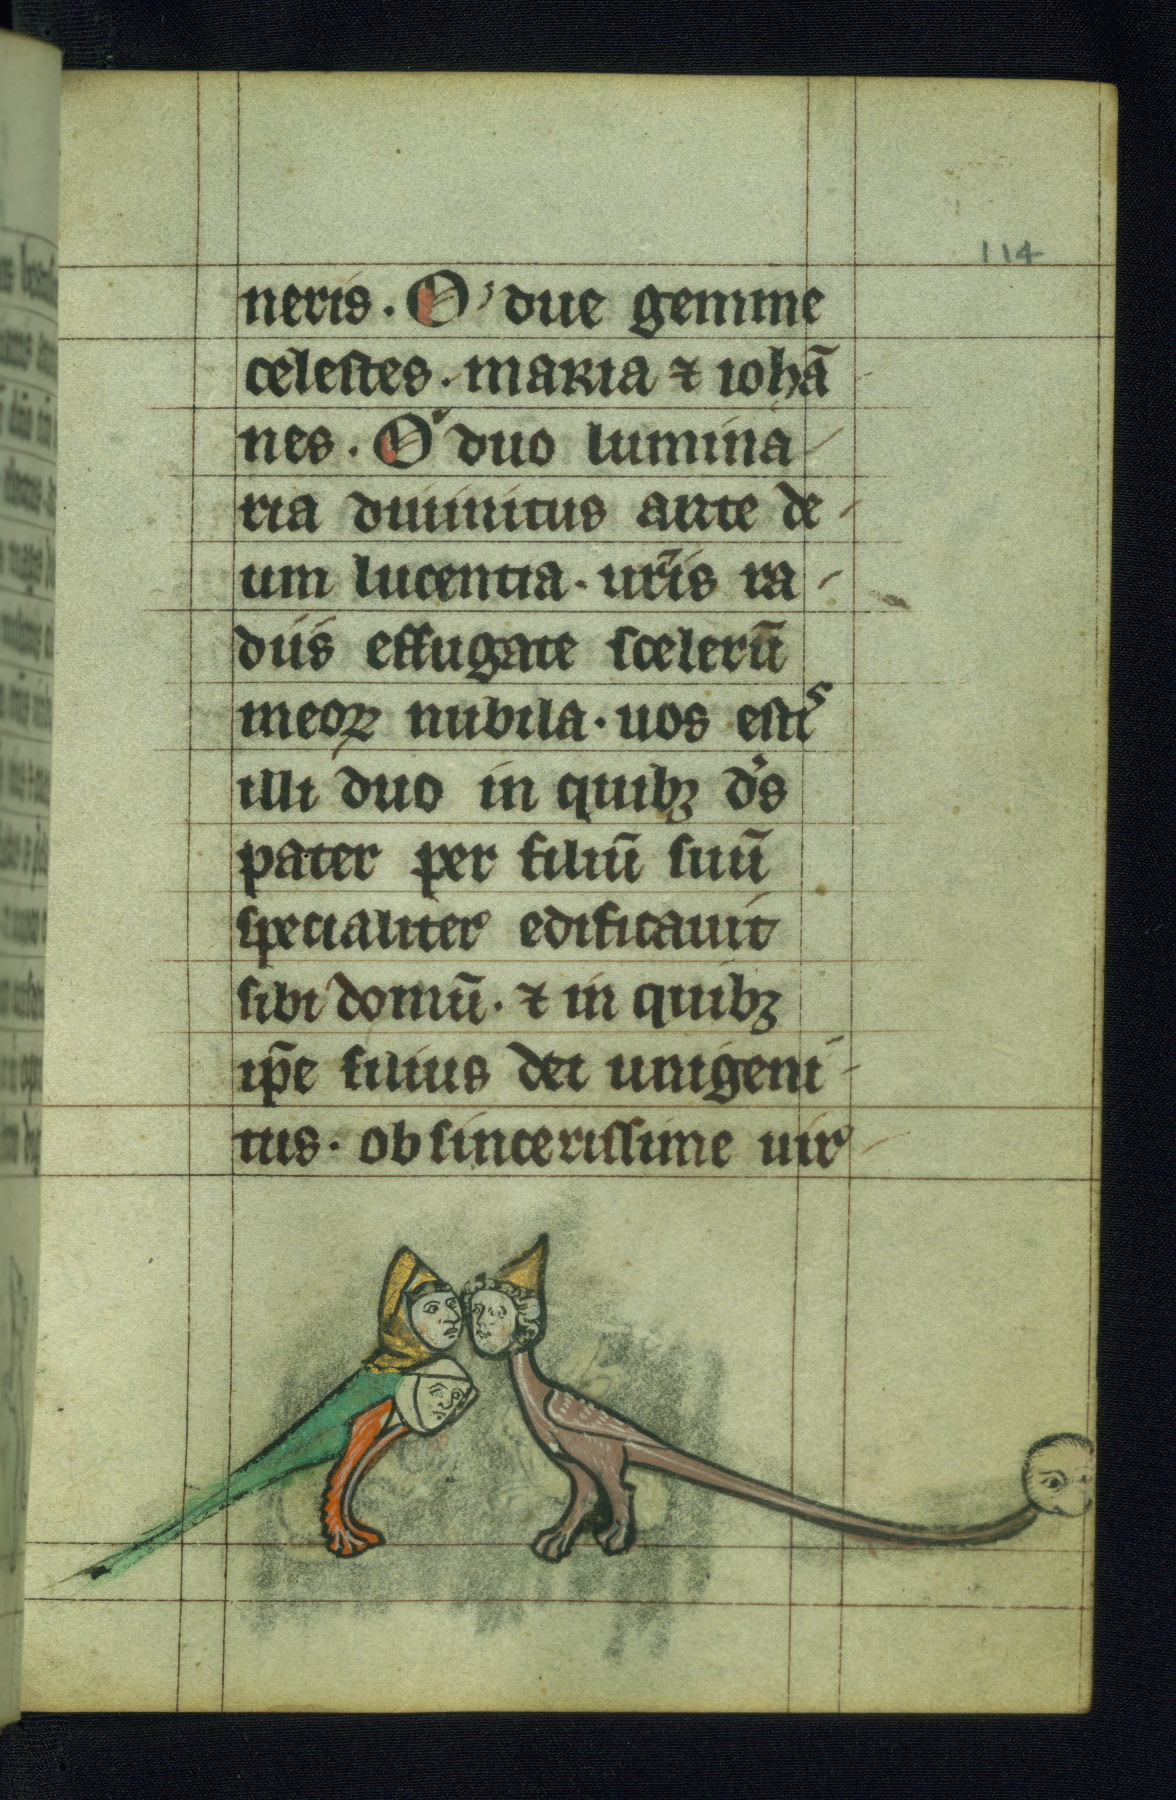 114
neris. O due gemme
celestes. maria ⁊ iohã
nes. O duo lumina
ria diuinitus ante de
um lucentia. ur̃is ra
diis effugate scelerũ
meoꝝ nubila. uos estis
illi duo in quibꝫ d's
pater per filiũ suũ
specialiter edificauit
sibi domũ. ⁊ in quibꝫ
ip̃e filius dei unigeni
tus. ob sincerissime uir